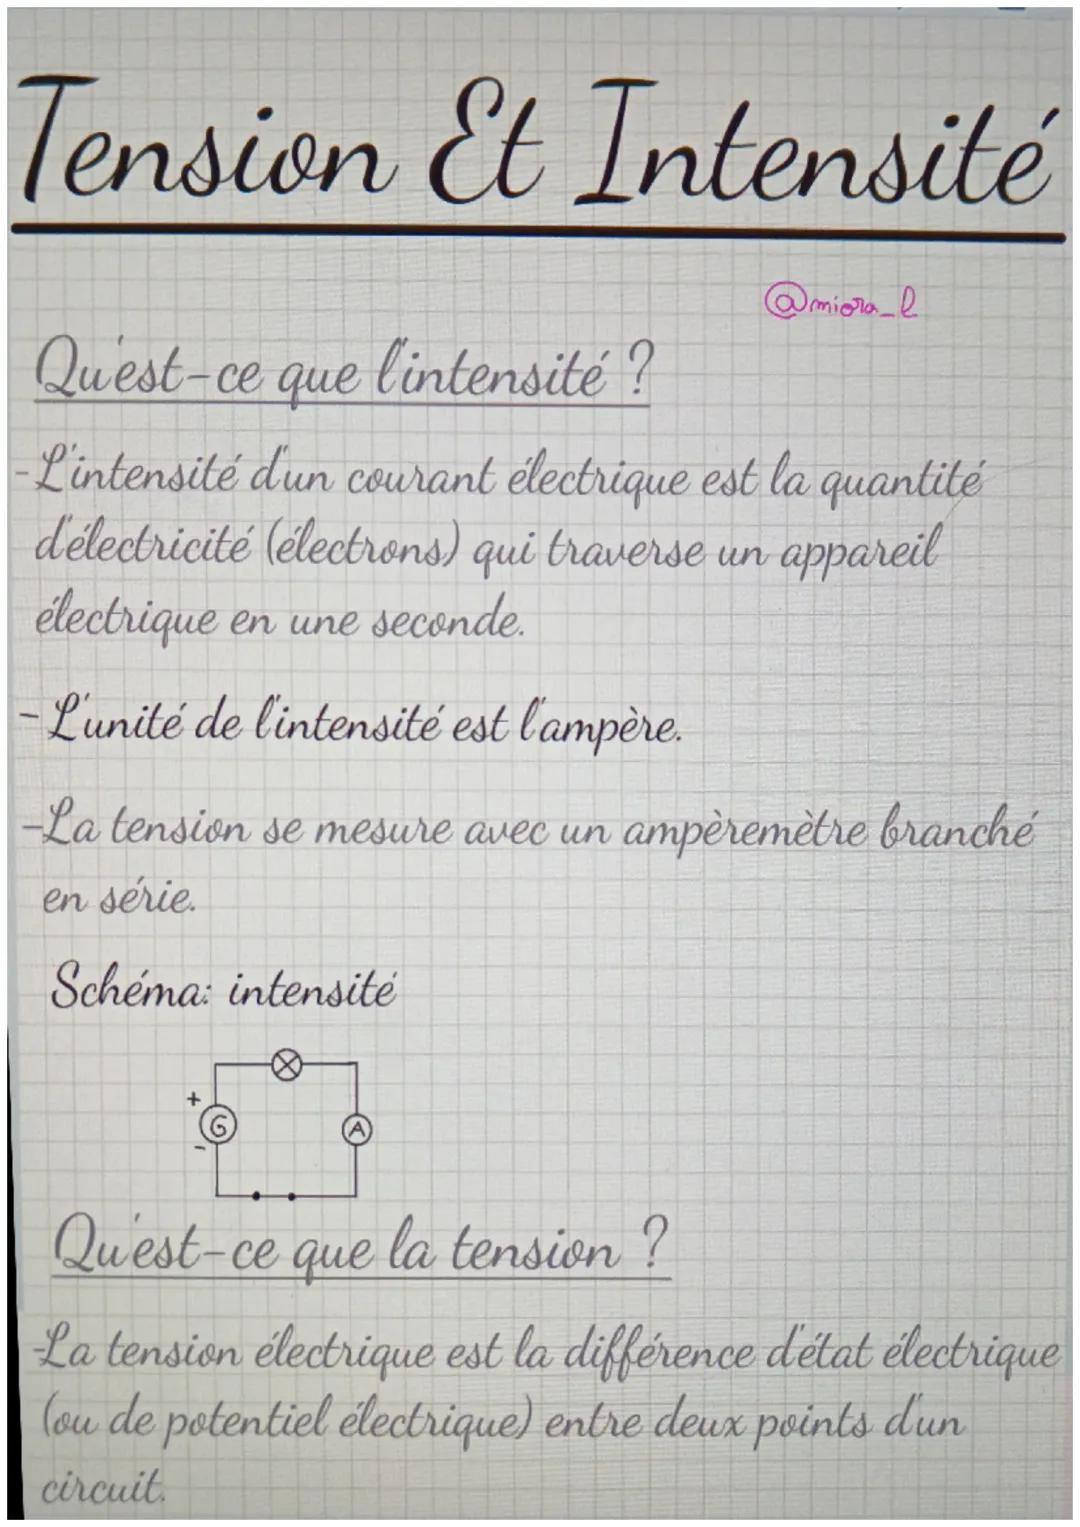 Tension Et Intensité
@miora_l
Qu'est-ce que l'intensité ?
-L'intensité d'un courant électrique est la quantité
d'électricité (électrons) qui traverse un appareil
électrique en une seconde.
-L'unité de l'intensité est l'ampère.
-La tension se mesure avec un ampèremètre branché
en série.
Schéma: intensité
+
G
A
-
Qu'est-ce que la tension ?
-La tension électrique est la différence d'état électrique
(ou de potentiel électrique) entre deux points d'un
circuit.